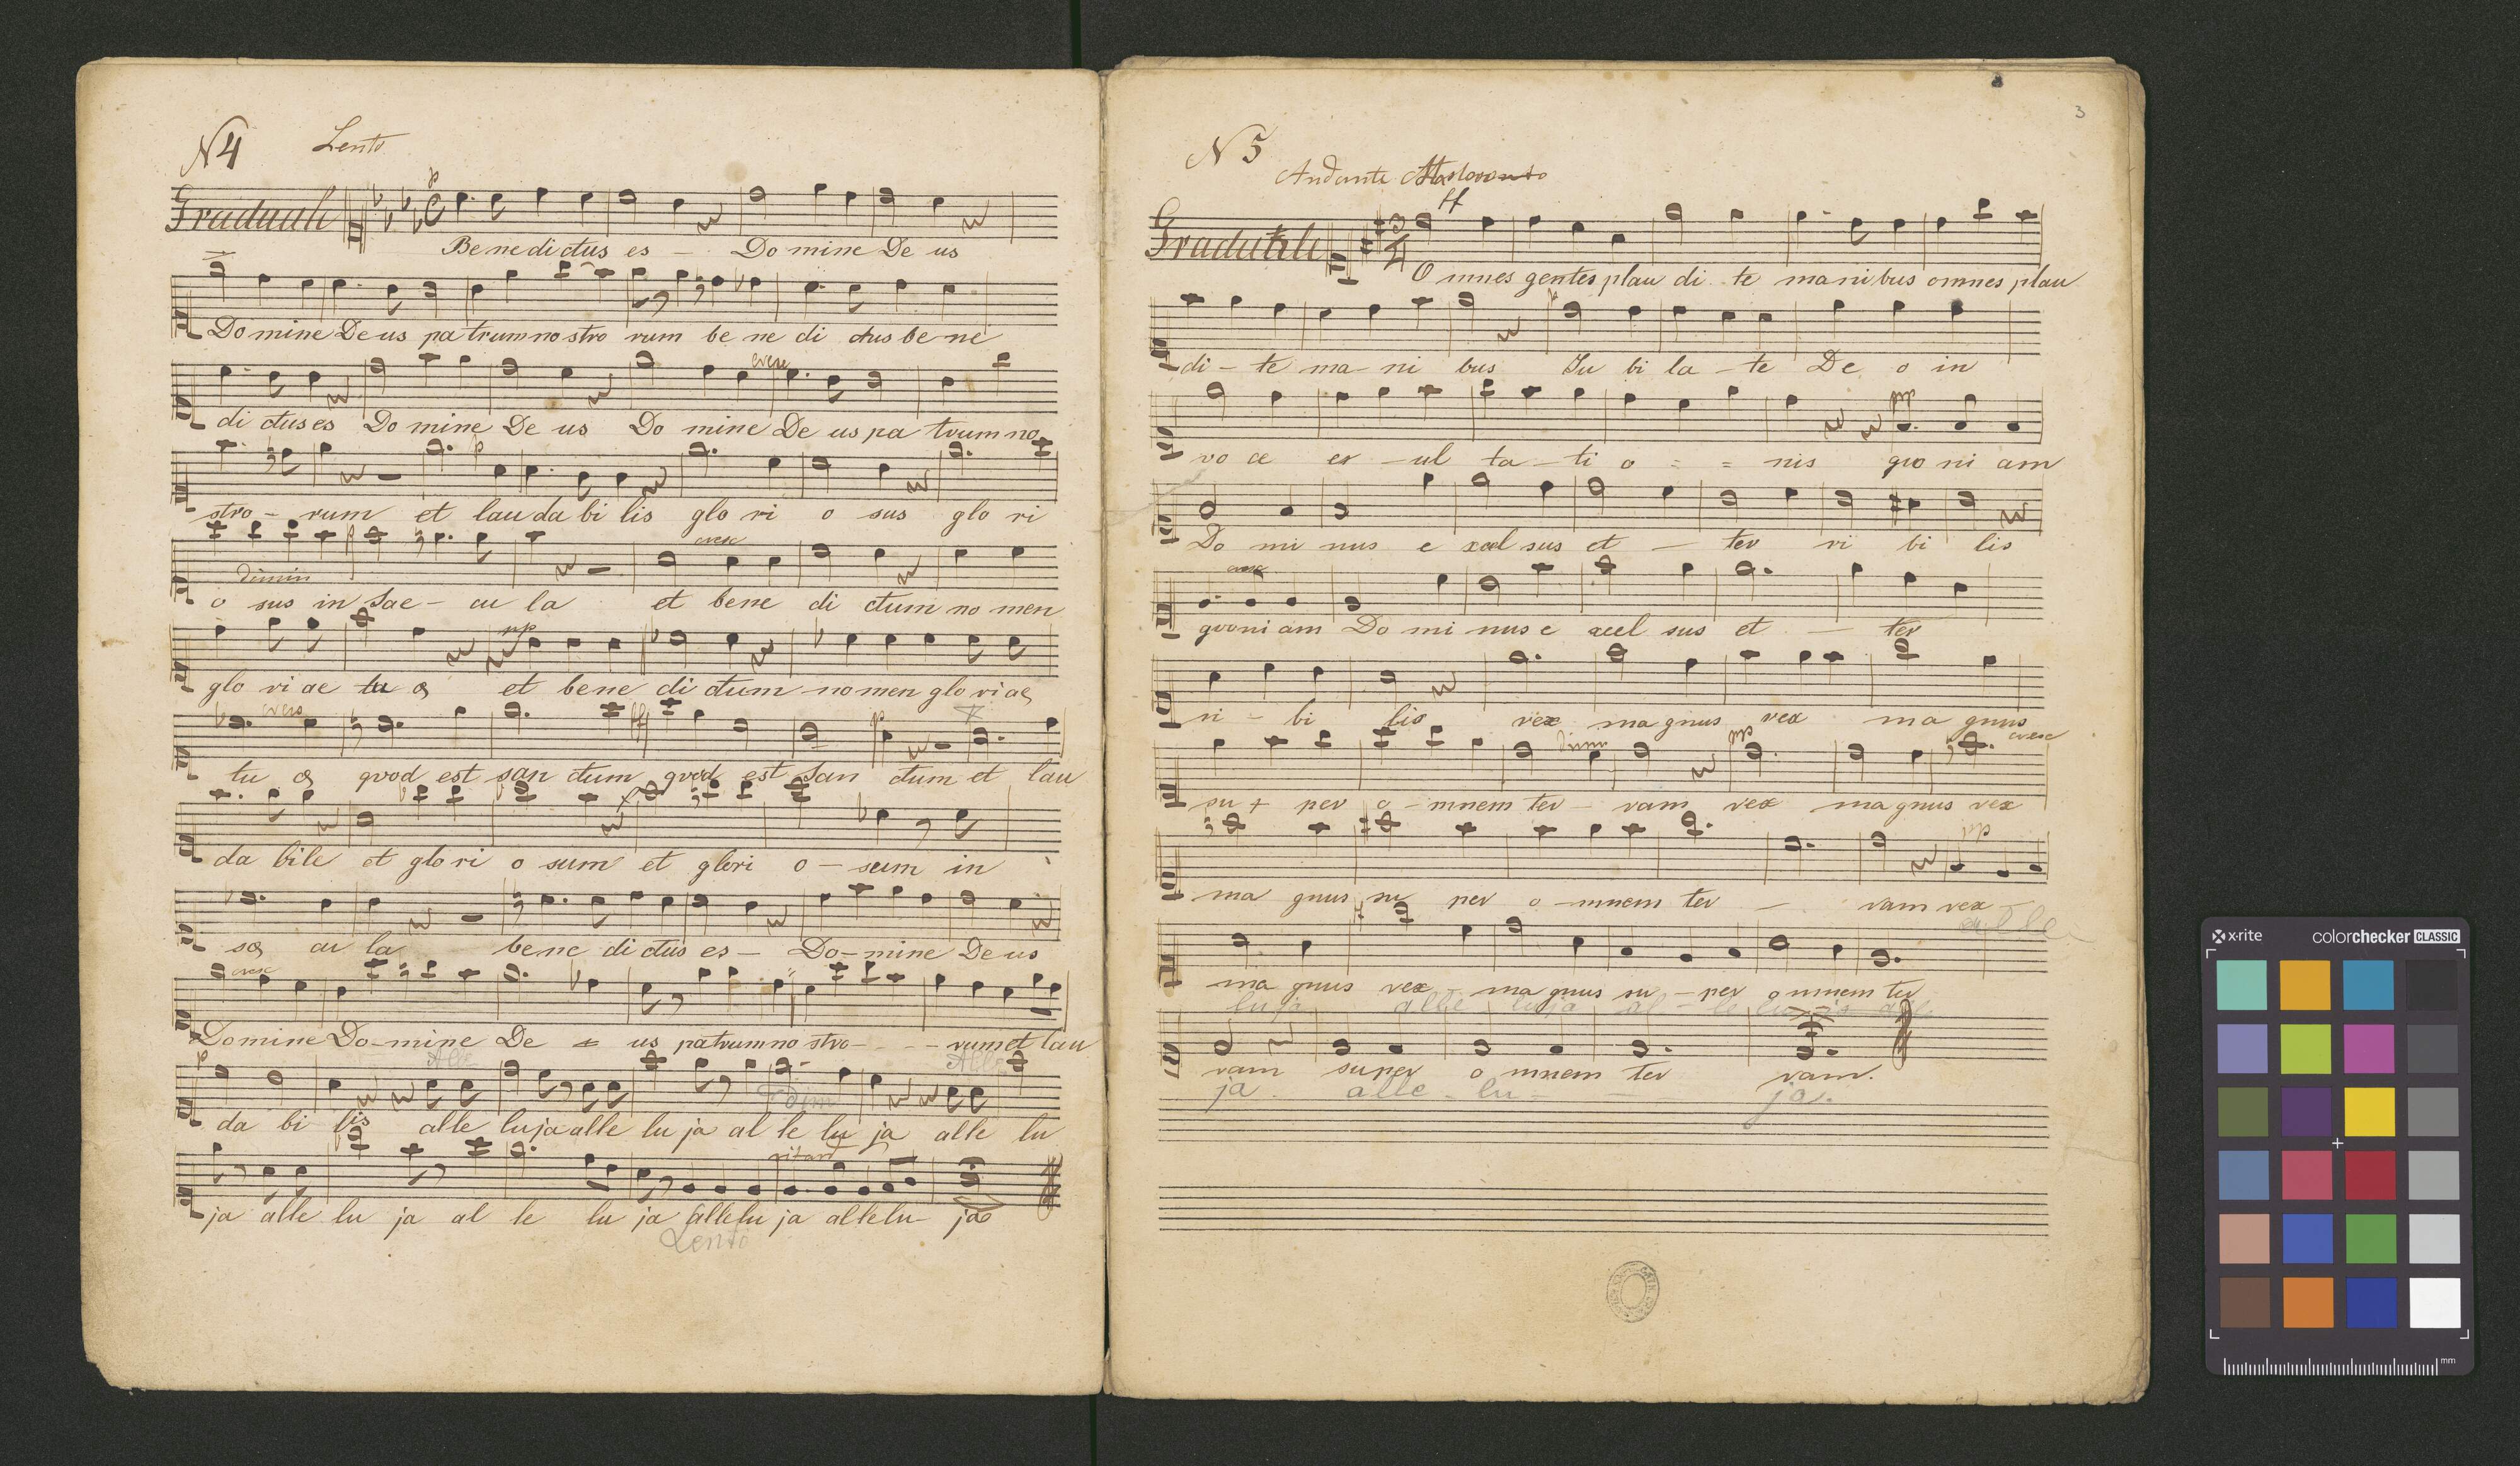 N4 Lento
Graduale
p
Benedictus es - Domine Deus
Domine Deus patrum nostro rum be ne di ctus be ne
cresc
di ctus es Domine De us Do mine De us pa trum no
p
stro - rum et lau da bi lis glo ri o sus glo ri
p cresc
dimin
o sus in Sae - cu la et bene di ctum no men
pp
glo ri ae tu æ et bene di ctum no men glo ri ae
cresc ff p
tu æ qvod est san ctum qvod est San ctum et lau
f
da bile et glo ri o sum et glori o - sum in
sæ cu la bene di ctus es - Do - mine De us
cresc
Domine Do - mine De = us patrum no stro - - - rum et lau
p Alle Alle
dim
da bi lis alle luja alle lu ja al le lu ja alle lu
ritard
ja alle lu ja al le lu ja allelu ja allelu - ja
Lento
3
N 5
Andante
ff
Graduale
O mnes gentes plau di te manibus omnes plau
p
di - te ma - ni bus Ju bi la - te De o in
pp
vo ce ex - ul ta - ti o = = nis qvo ni am
Do mi nus e xcel sus et - ter ri bi lis
cresc
qvoni am Do mi nus e xcel sus et - ter
ri - bi lis rex ma gnus rex ma gnus
dimin cresc
su + per o - mnem ter - ram rex ma gnus rex
ma gnus su per o - mnem ter - ram rex -
ma gnus rex - ma gnus su - per o mnem ter
luja alle luja al - le lu
ram super o mnem ter ram.
ja alle - lu - ja.
x·rite colorchecker CLASSIC
mm